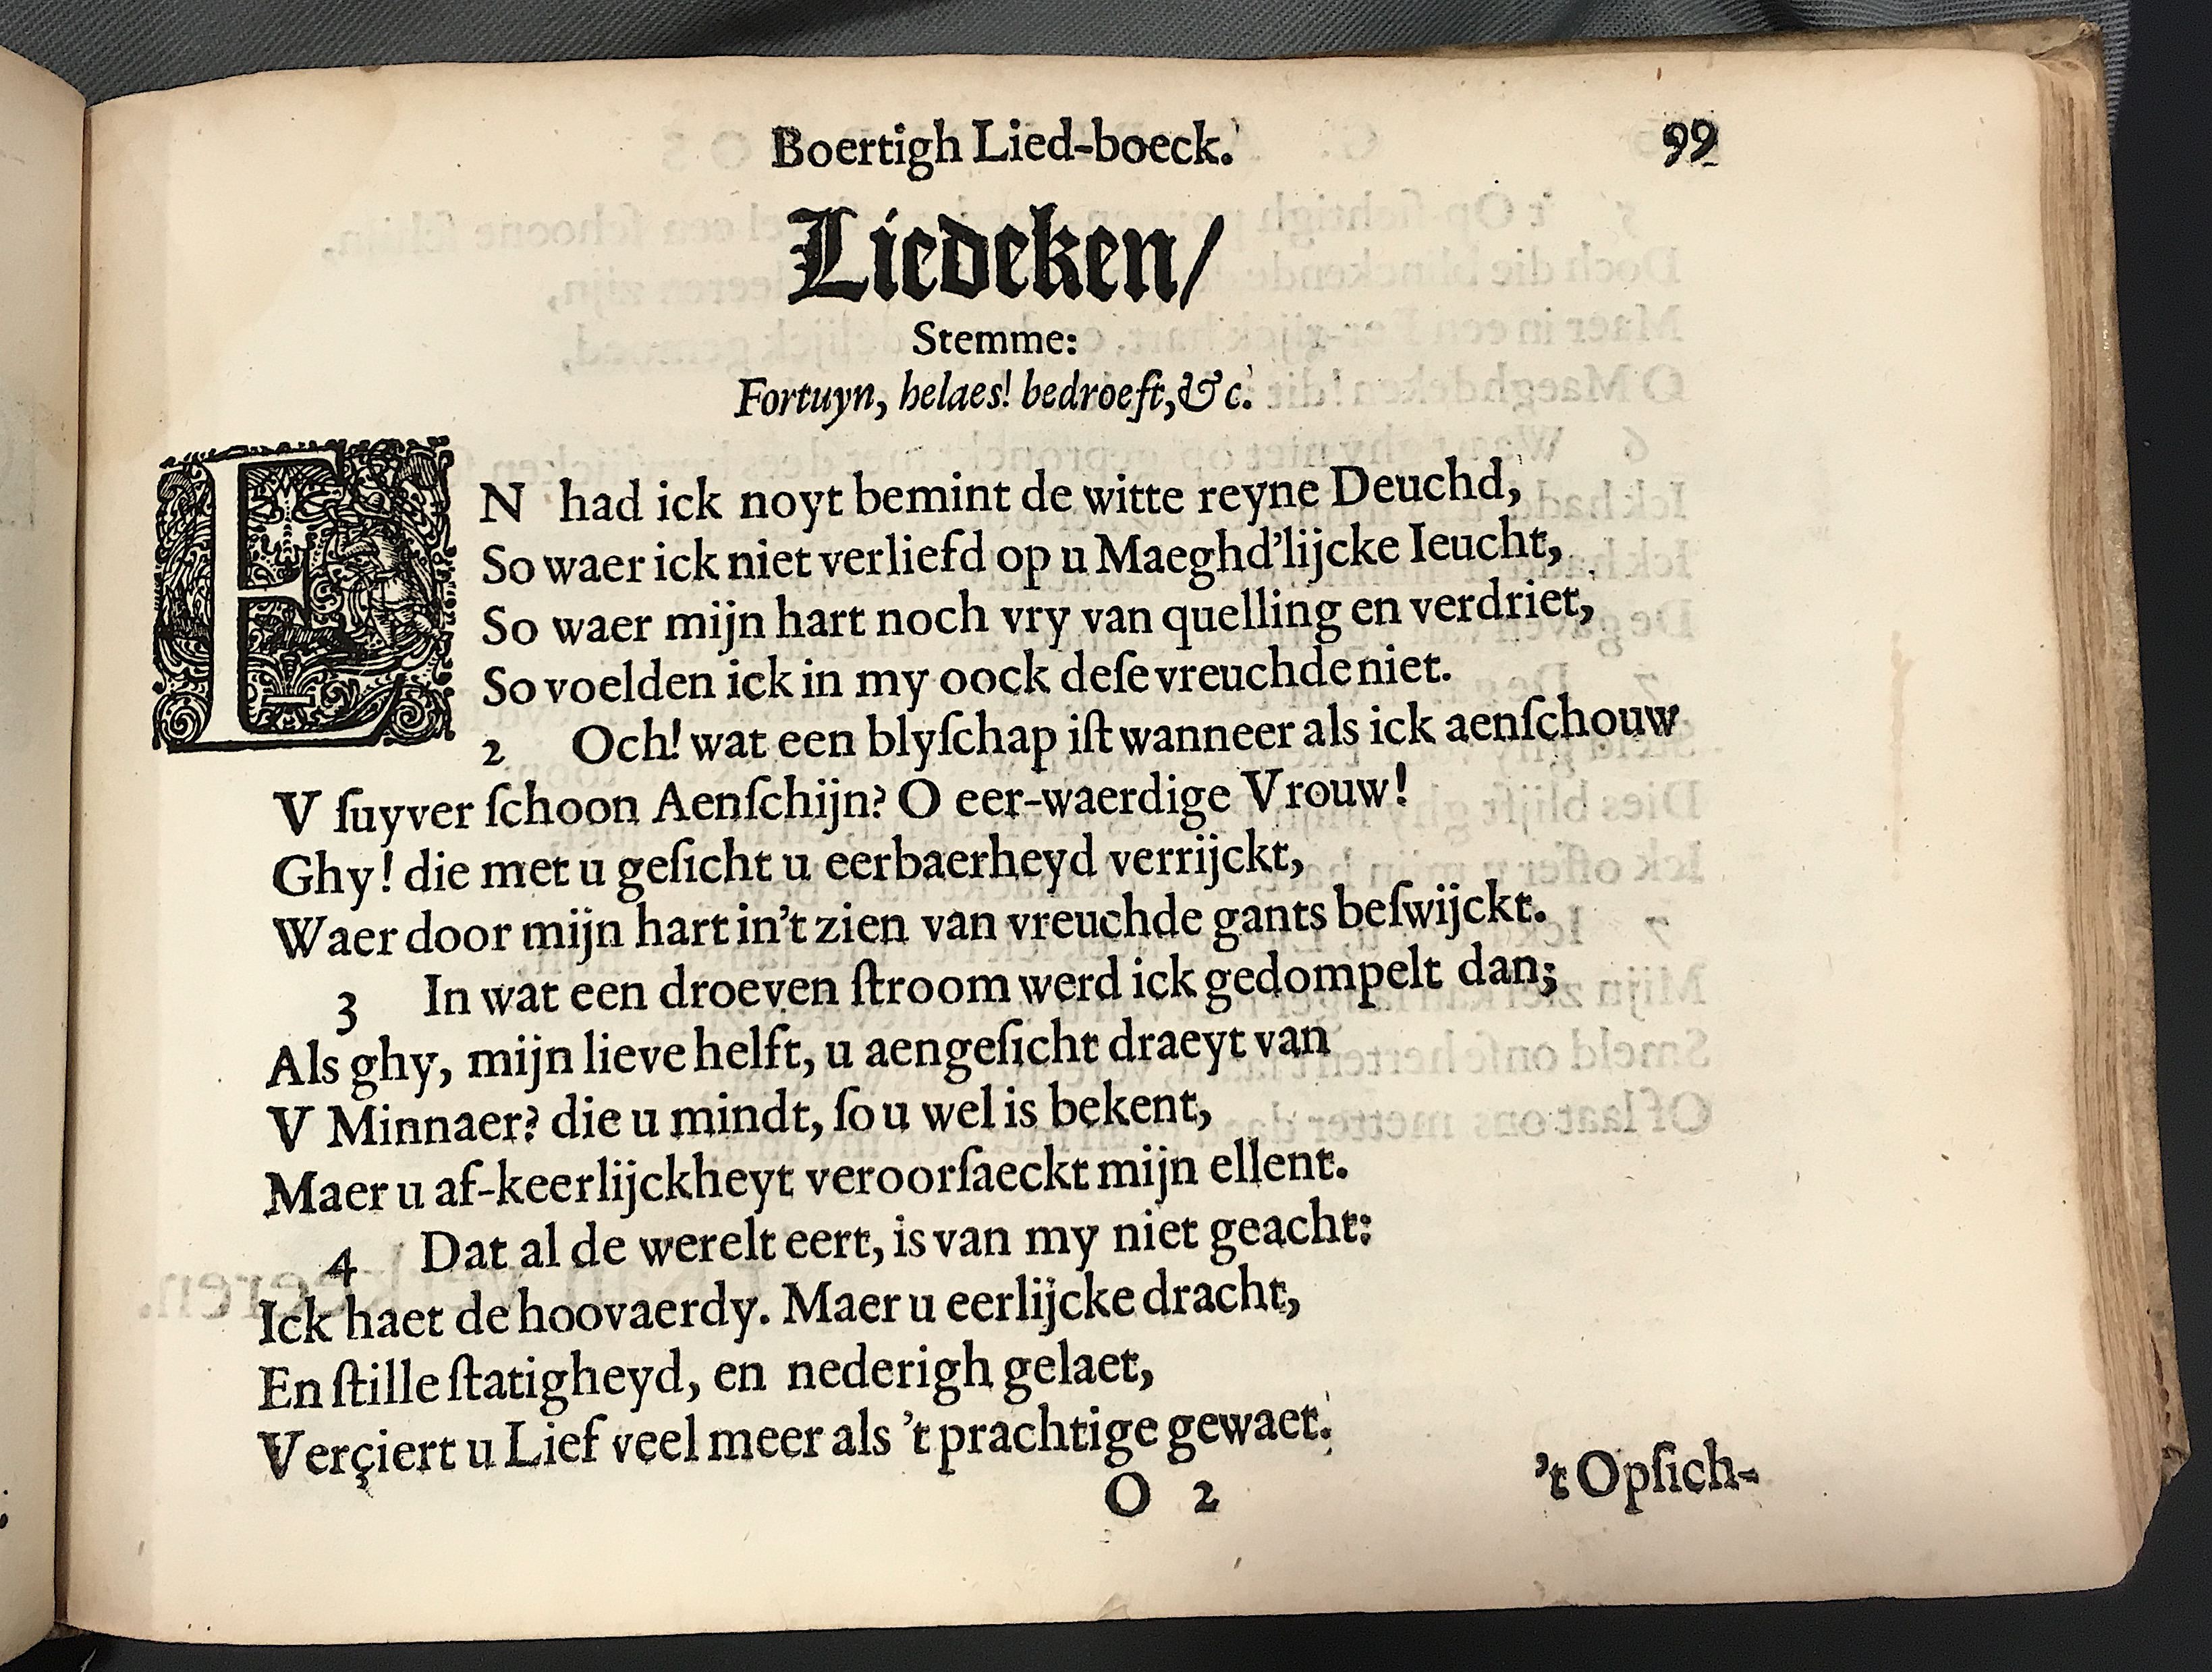 Boertigh Lied-boeck. 99
Liedeken/
Stemme:
Fortuyn, helaes! bedroeft, &c.
EN had ick noyt bemint de witte reyne Deuchd,
So waer ick niet verliefd op u Maeghd'lijcke Ieucht,
So waer mijn hart noch vry van quelling en verdriet,
So voelden ick in my oock deſe vreuchde niet.
2 Och! wat een blyſchap iſt wanneer als ick aenſchouw
V ſuyver ſchoon Aenſchijn? O eer-waerdige Vrouw!
Ghy! die met u geſicht u eerbaerheyd verrijckt,
Waer door mijn hart in't zien van vreuchde gants beſwijckt.
3 In wat een droeven ſtroom werd ick gedompelt dan;
Als ghy, mijn lieve helft, u aengeſicht draeyt van
V Minnaer? die u mindt, ſo u wel is bekent,
Maer u af-keerlijckheyt veroorſaeckt mijn ellent.
4 Dat al de werelt eert, is van my niet geacht:
Ick haet de hoovaerdy. Maer u eerlijcke dracht,
En ſtille ſtatigheyd, en nederigh gelaet,
Verçiert u Lief veel meer als 't prachtige gewaet.
O 2 't Opſich-